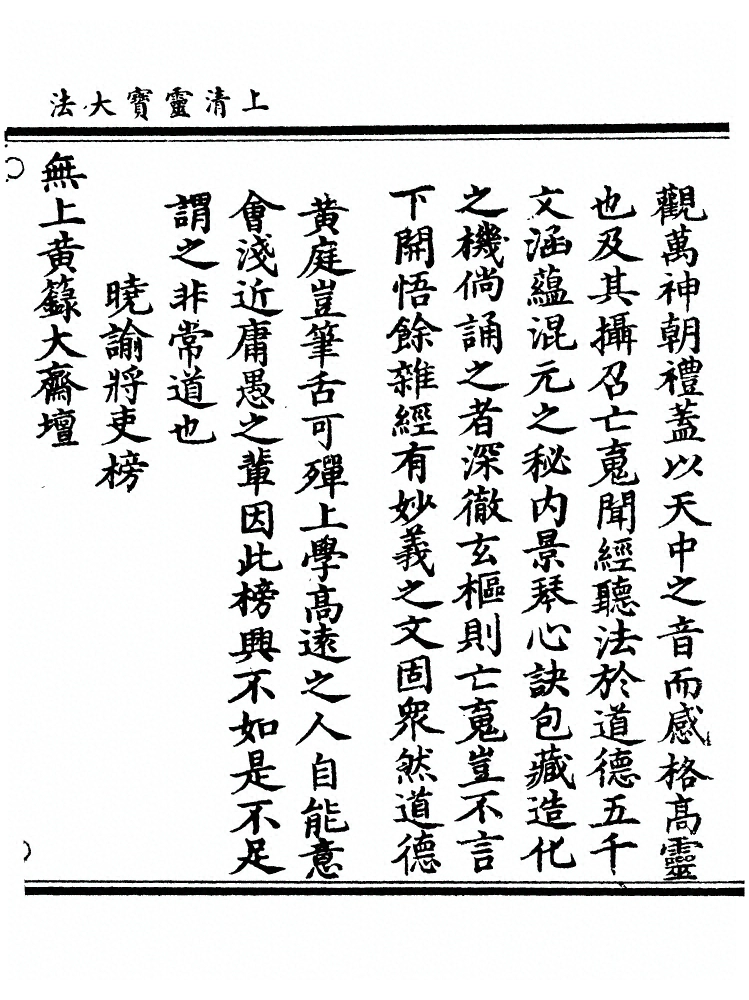 上清靈寶大法
觀萬神朝禮蓋以天中之音而感格高靈
也及其攝召亡䰟聞經聽法於道德五千
文涵蘊混元之秘內景琴心訣包藏造化
之機倘誦之者深徹玄樞則亡䰟豈不言
下開悟餘雜經有妙義之文固衆然道德
黃庭豈筆舌可殫上學高遠之人自能意
會淺近庸愚之輩因此榜興不如是不足
謂之非常道也
曉諭將吏榜
無上黃籙大齋壇